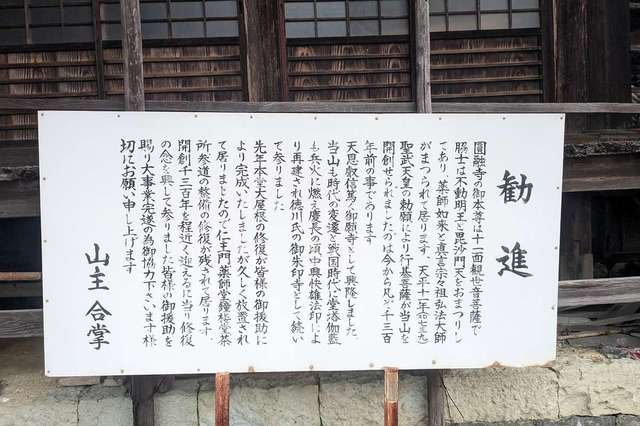 勧進
圓融寺の御本尊は十一面観世音菩薩で
脇士は不動明王と毘沙門天をおまつりし
てあり、薬師如来と真言宗々祖弘法大師
がまつられて居ります。天平十一年
聖武天皇の勅願により行基菩薩が当山を
開創せられましたのは今から凡そ千三百
年前の事であります
天恩叡信篤く御願寺として興隆しました。
当山も時代の変遷と戦国時代に堂塔伽藍
も兵火に燃え慶長の頃中興快雄法印によ
り再建され徳川氏の御朱印寺として続い
て参りました
先年本堂大屋根の修復が皆様の御援助に
より完成いたしましたが久しく放置され
て居りましたので仁王門薬師堂鐘楼堂茶
所参道の整備の修復が残されて居ります。
開創千三百年を程近く迎えるに当り修復
の念を興して参りました皆様の御援助を
賜り大事業完遂の為御協力下さいます様
切にお願い申し上げます
山主 合掌